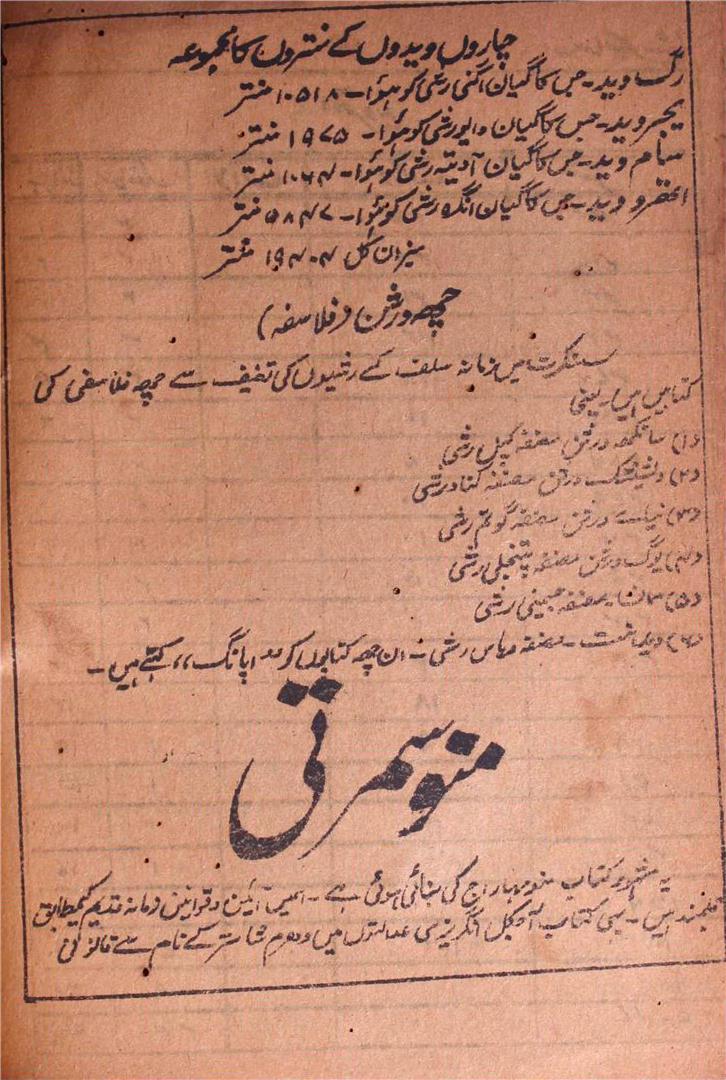 چاروں ویدوں کے منتروں کا مجموعہ
رگ وید۔ جس کا گیان اگنی رشی کو ہؤا۔ ۱۰۵۱۸ منتر
یجروید۔ جس کا گیان وایو رشی کو ہؤا۔ ۱۹۷۵ منتر
سام وید۔ جس کا گیان آدیتہ رشی کو ہؤا۔ ۱۰۶۴ منتر
اتھرو وید۔ جس کا گیان انگرہ رشی کو ہؤا۔ ۵۸۴۷ منتر
میزان کل ۱۹۴۰۴ منتر
چھ درشن (فلاسفہ)
سنسکرت میں زمانہ سلف کے رشیوں کی تصنیف سے چھ فلاسفی کی
کتابیں ہیں۔ یعنی
(۱) سانکھ درشن مصنفہ کپل رشی
(۲) ویشیشک درشن مصنفہ کناد رشی
(۳) نیائے درشن مصنفہ گوتم رشی
(۴) یوگ درشن مصنفہ پتنجلی رشی
(۵) مصنفہ جیمینی رشی
(۶) ویدانت۔ مصنفہ ویاس رشی۔ ان چھ کتابوں کو "اپانگ" کہتے ہیں۔
منوسمرتی
یہ مشہور کتاب منو مہاراج کی بنائی ہوئی ہے۔ اسمیں آئین و قوانین زمانہ قدیم کیمطابق
قلمبند ہیں۔ یہی کتاب آجکل انگریزی عدالتوں میں دھرم شاستر کے نام سے قانونی